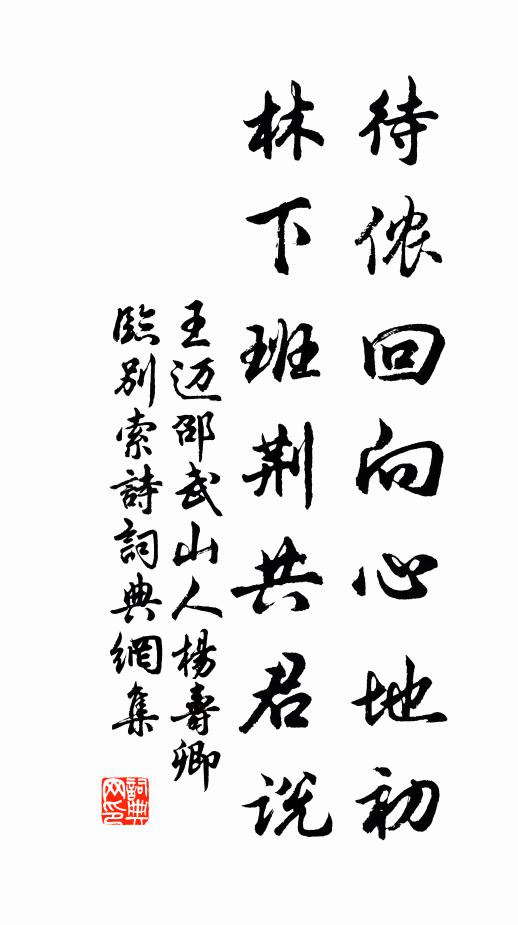 待侬回向心地初
林下班荆共君说
王迈邵武山人楊壽卿
臨别索詩詞典網集
詞典网印